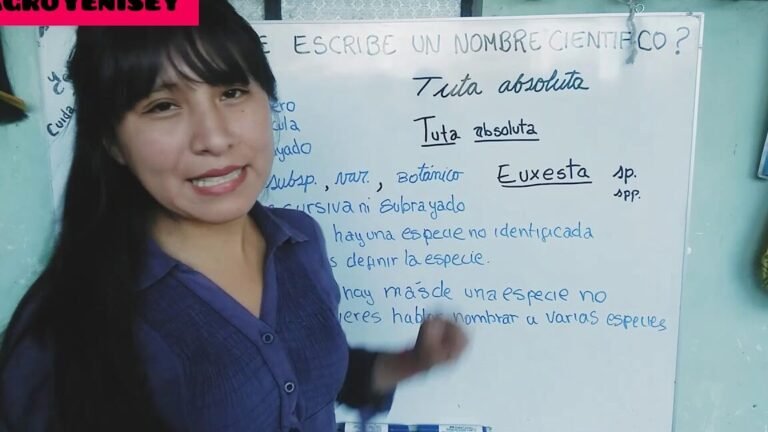 AGROYENISEY
E ESCRIBE UN NOMBRE CIENTIFICO?
Tuta absoluta
Tuta absoluta
subsp., var., BOTÁNICO
Euxesta sp.
spp.
cursiva ni Subrayado
hay una especie no identificada
definir la especie.
hay más de una especie no
nombrar a varias especies
Cuida